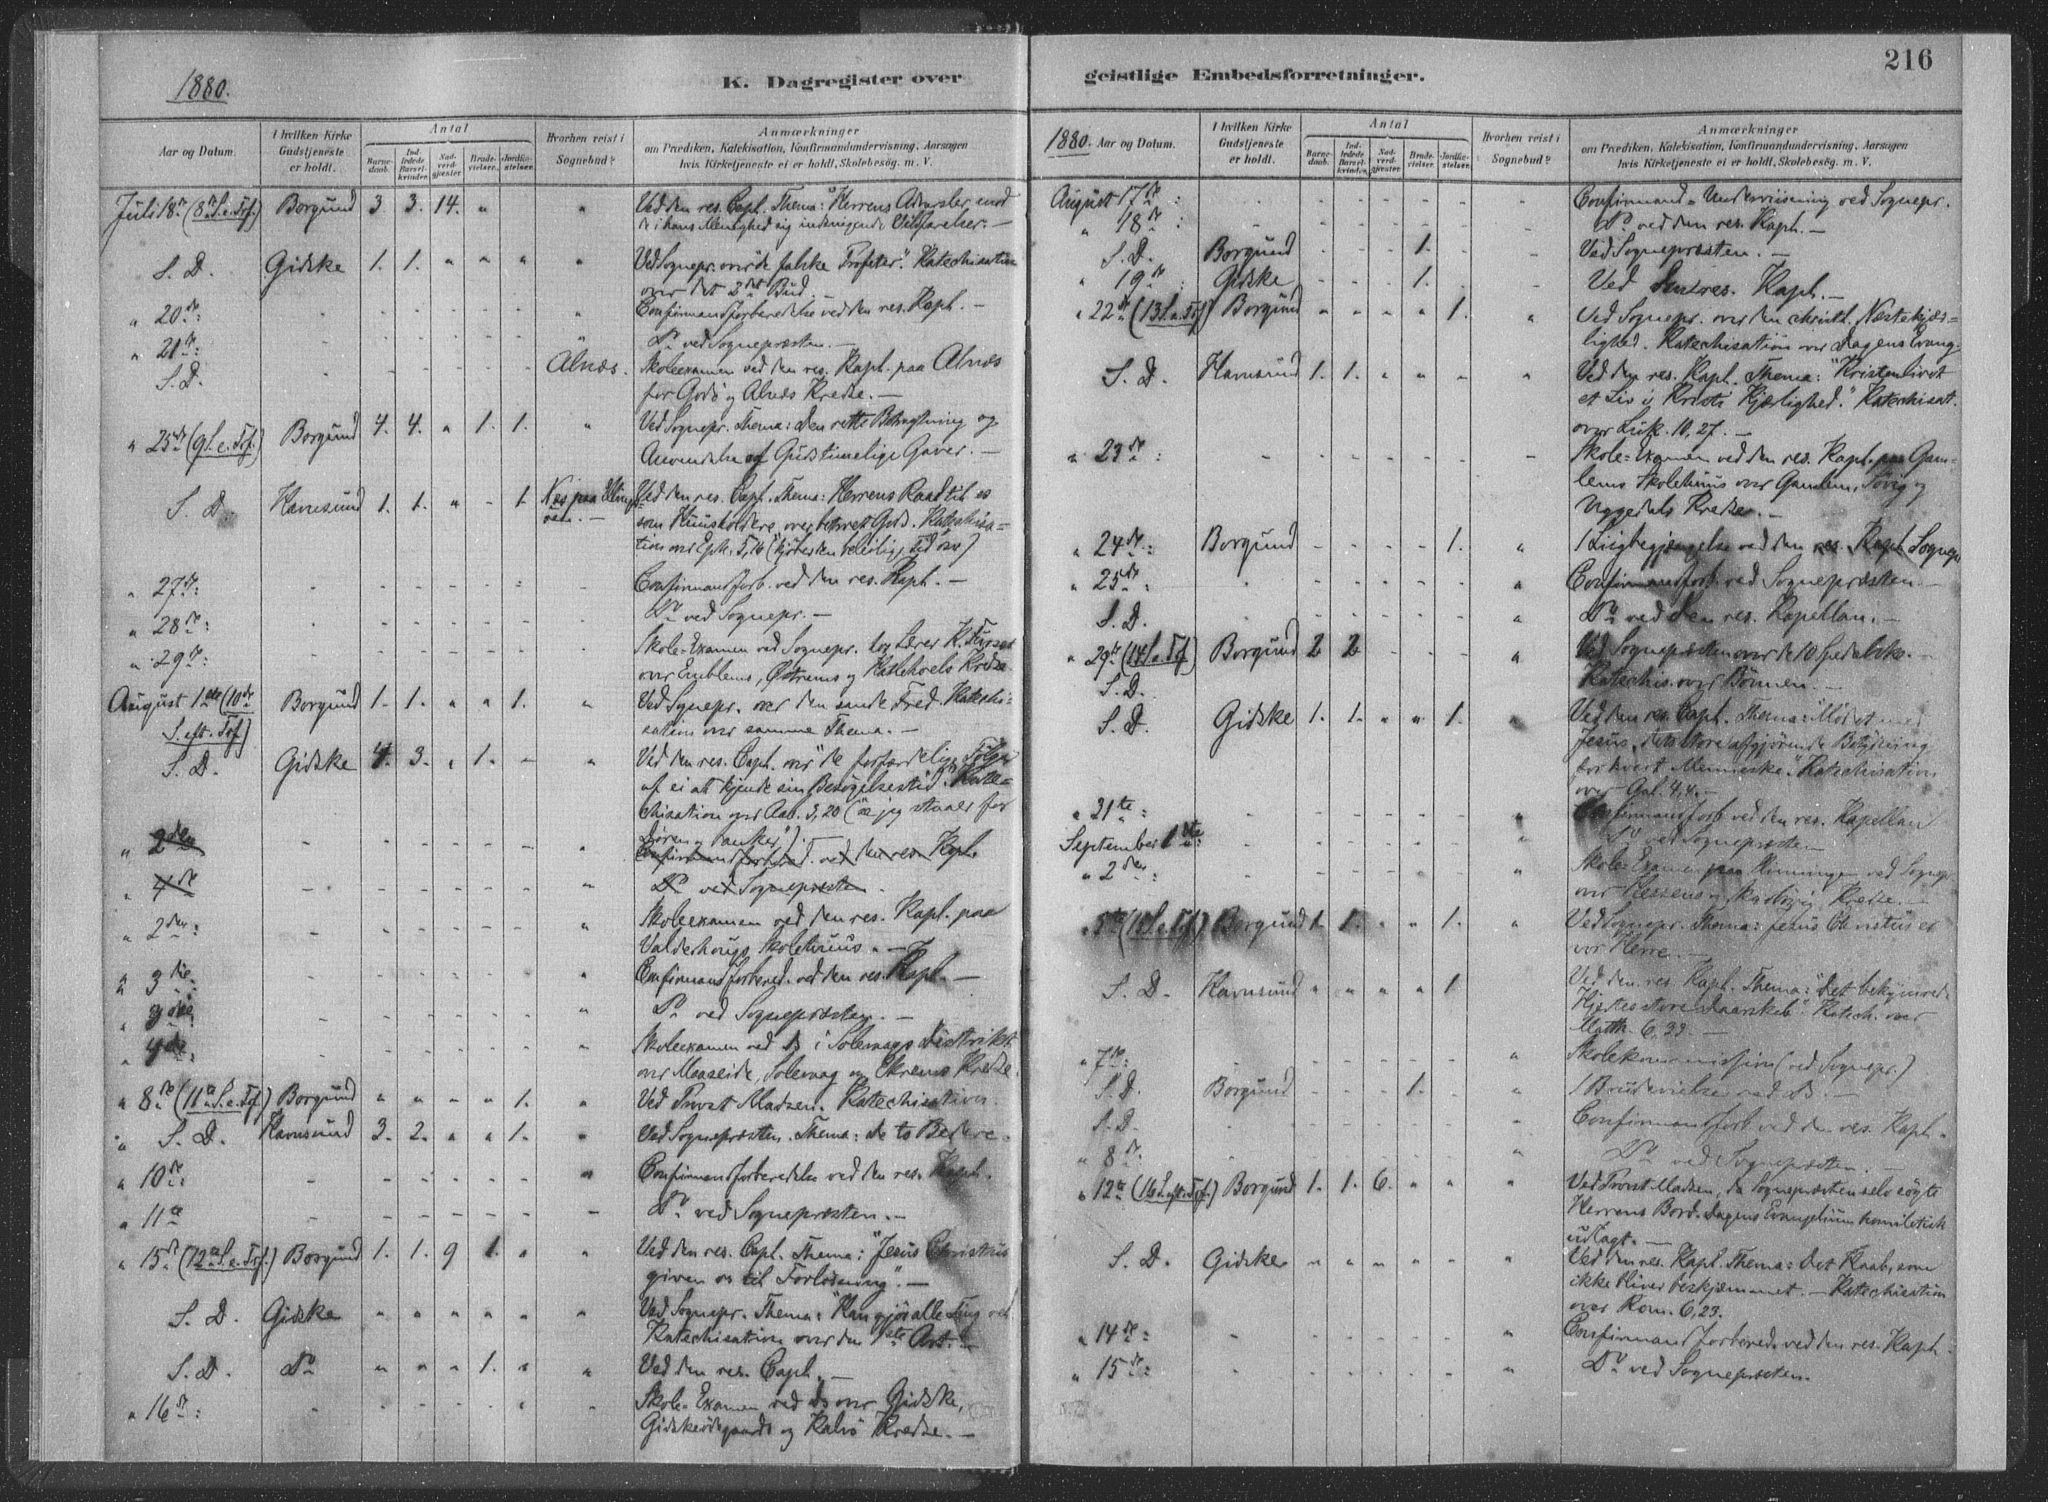 1880.
K. Dagregister over
Aar og Datum.
I hvilken Kirke Gudstjeneste er holdt.
Antal
Barnedaab.
Indledede Barselkvinder.
Nadverdgjester.
Brudevielser.
Jordfæstelser.
Hvorhen reist i Sognebud?
Anmærkninger
om Prædiken, Katekisation, Konfirmandundervisning, Aarsagen
hvis Kirketjeneste ei er holdt, Skolebesøg m. V.
Juli 18de (8de S. e. Trf.) Borgund 3. 3. 14. " " Ved den res. Capl. Thema: "Herrens Advarsler mod
de i hans Menighed sig indsnigende Vildfarelser. —
S. D. Gidske 1. 1. " " " " Ved Sognepr. over "de falske Profeter." Katechisation
over det 2det Bud.
" 20de: Confirmandforberedelse ved den res. Kapl. —
" 21de: Do ved Sognepræsten. —
S. D. Alnæs. Skoleexamen ved den res. Kapl. paa Alnæs
for Godø og Alnæs Kredse. —
" 25de (9 S. e. Trf.) Borgund 4. 4. " 1. 1. " Ved Sognepr. Thema: Den rette Betragtning og
Anvendelse af Guds timelige Gaver. —
S. D. Havnsund 1. 1. " - 1. Næs paa Ellings- Ved den res. Capl. Thema: Herrens Raad til os
øen. — som Huusholdere over betroet Gods. Katechisa-
tion over Eph. 5,16 ("kjøber den beleilige Tid osv)
" 27de: Confirmandforb. ved den res. Kapl. —
" 28de: Do ved Sognepr. —
" 29de: Skole-Examen ved Sognepr. og Lærer K.
over Emblems, Østrems og Kredse
August 1ste (10de Borgund 1. 1. " " 1. " Ved Sognepr. over den sande Fred. Katechi-
S. eft. Trf.) sation over samme Thema. —
S. D. Gidske 4. 3. " 1. - " Ved den res. Capl. over "de forfærdelige Følger
af ei at kjende sin Besøgelsestid". Kate-
chisation over Aab. 3,20 ("se jeg staaer for
Døren og banker"). —
" 2den Confirmandforbered. ved den res. Kpl.
" 4de Do ved Sognepræsten
" 2den: Skoleexamen ved den res. Kapl. paa
Valderhougs Skolehuus. —
" 3die Confirmandforbered. ved den res. Kapl. —
Do ved Sognepræsten. —
" 4de Skoleexamen ved Do i Solevaags Distrikt
over Maaseide, Solevaag og Ekrems Kredse.
" 8de (11te S. e. Trf.) Borgund " " " " 1. " Ved Provst Madsen. Katechisation.
" S. D. Havnsund 3. 2. " " 1. " Ved Sognepræsten. Thema: De to Bedere —
" 10de: Confirmandforberedelse ved den res. Kapl.
" 11te Do ved Sognepræsten. —
" 15de (12te S. e. Trf.) Borgund 1. 1. 9 1. " " Ved den res. Capl. Thema: "Jesus Christus
given os til Forløsning". —
S. D. Gidske " " " " " " Ved Sognepr. Thema: "Han gjør alle Ting vel
Katechisation over den 1ste Art. —
S. D. Do " " " 1. " " Ved den res. Capl. —
" 16de: Skole-Examen ved Do over Gidske,
Gidskeødegaards og Kalvø Kredse. —
216
geistlige Embedsforretninger.
1880. Aar og Datum.
I hvilken Kirke Gudstjeneste er holdt.
Antal
Barnedaab.
Indledede Barselkvinder.
Nadverdgjester.
Brudevielser.
Jordfæstelser.
Hvorhen reist i Sognebud?
Anmærkninger
om Prædiken, Katekisation, Konfirmandundervisning, Aarsagen
hvis Kirketjeneste ei er holdt, Skolebesøg m. V.
August 17de: Confirmand-Underviisning ved Sognepr.
" 18de: Do ved den res. Kapl. —
S. D. Borgund 1. Ved Sognepræsten. —
" 19de: Gidske 1. Ved Den res. Kapl. —
" 22de (13 S. e. Trf) Borgund " " " " 1. " Ved Sognepr. over den christl. Næstekjær-
lighed. Katechisation over Dagens Evang.
S. D. Havnsund 1. 1. " " " " Ved den res. Kapl. Thema: "Kristenlivet
et Liv i Kristi Kjærlighed." Katechisat.
over Luk. 10,27. —
" 23de: Skole-Examen ved den res. Kapl. paa Gam-
lems Skolehuus over Gamlem, Søvig og
Uggedals Kredse. —
" 24de: Borgund 1. " 1 Liigbegjængelse ved den res. Kapl. Sognepr
" 25de: Confirmandforb. ved Sognepræsten. —
S. D. Do ved den res. Kapellan. —
" 29de (14 S. e. Trf) Borgund 2 2 Ved Sognepræsten over de 10 Spedalske. —
S. D. Katechis. over Bønnen. —
S. D. Gidske 1. 1. " " 1. " Ved den res. Capl. Thema: "Mødet med
Jesus, dets store afgjørende Betydning
for hvert Menneske". Katechisation
over Gal. 4,4. —
" 31te: Confirmandforb ved den res. Kapellan
September 1ste: Do ved Sognepræsten
" 2den: Skole-Examen paa ved Sognepr
over og Kredse. —
" 5te (15 S. e. Trf) Borgund 1. 1. " " 1. " Ved Sognepr. Thema: Jesus Christus er
vor Herre. —
S. D. Havnsund " " " " 1 " Ved den res. Kapl. Thema: "Det bekymrede
Hjertes store Daarskab". Katech. over
Matth. 6,33. —
" 7de: Skolekommission (ved Sognepr.)
S. D. Borgund 1. " 1 Brudevielse ved Do. —
S. D. Confirmandforb ved den res. Kapl. —
" 8de: Do ved Sognepræsten. —
" 12te (16 S. eft. Trf.) Borgund 1. 1. 6. " " " Ved Provst Madsen, da Sognepræsten selv søgte
Herrens Bord. Dagens Evangelium homiletisk
udlagt. —
S. D. Gidske " " " " " " Ved den res. Kapl. Thema: Det Haab, som
ikke bliver beskjæmmet. — Katechisation
over Rom. 6,23.
" 14de: Confirmandforbered. ved den res. Kapl.
" 15de: Do ved Sognepræsten.